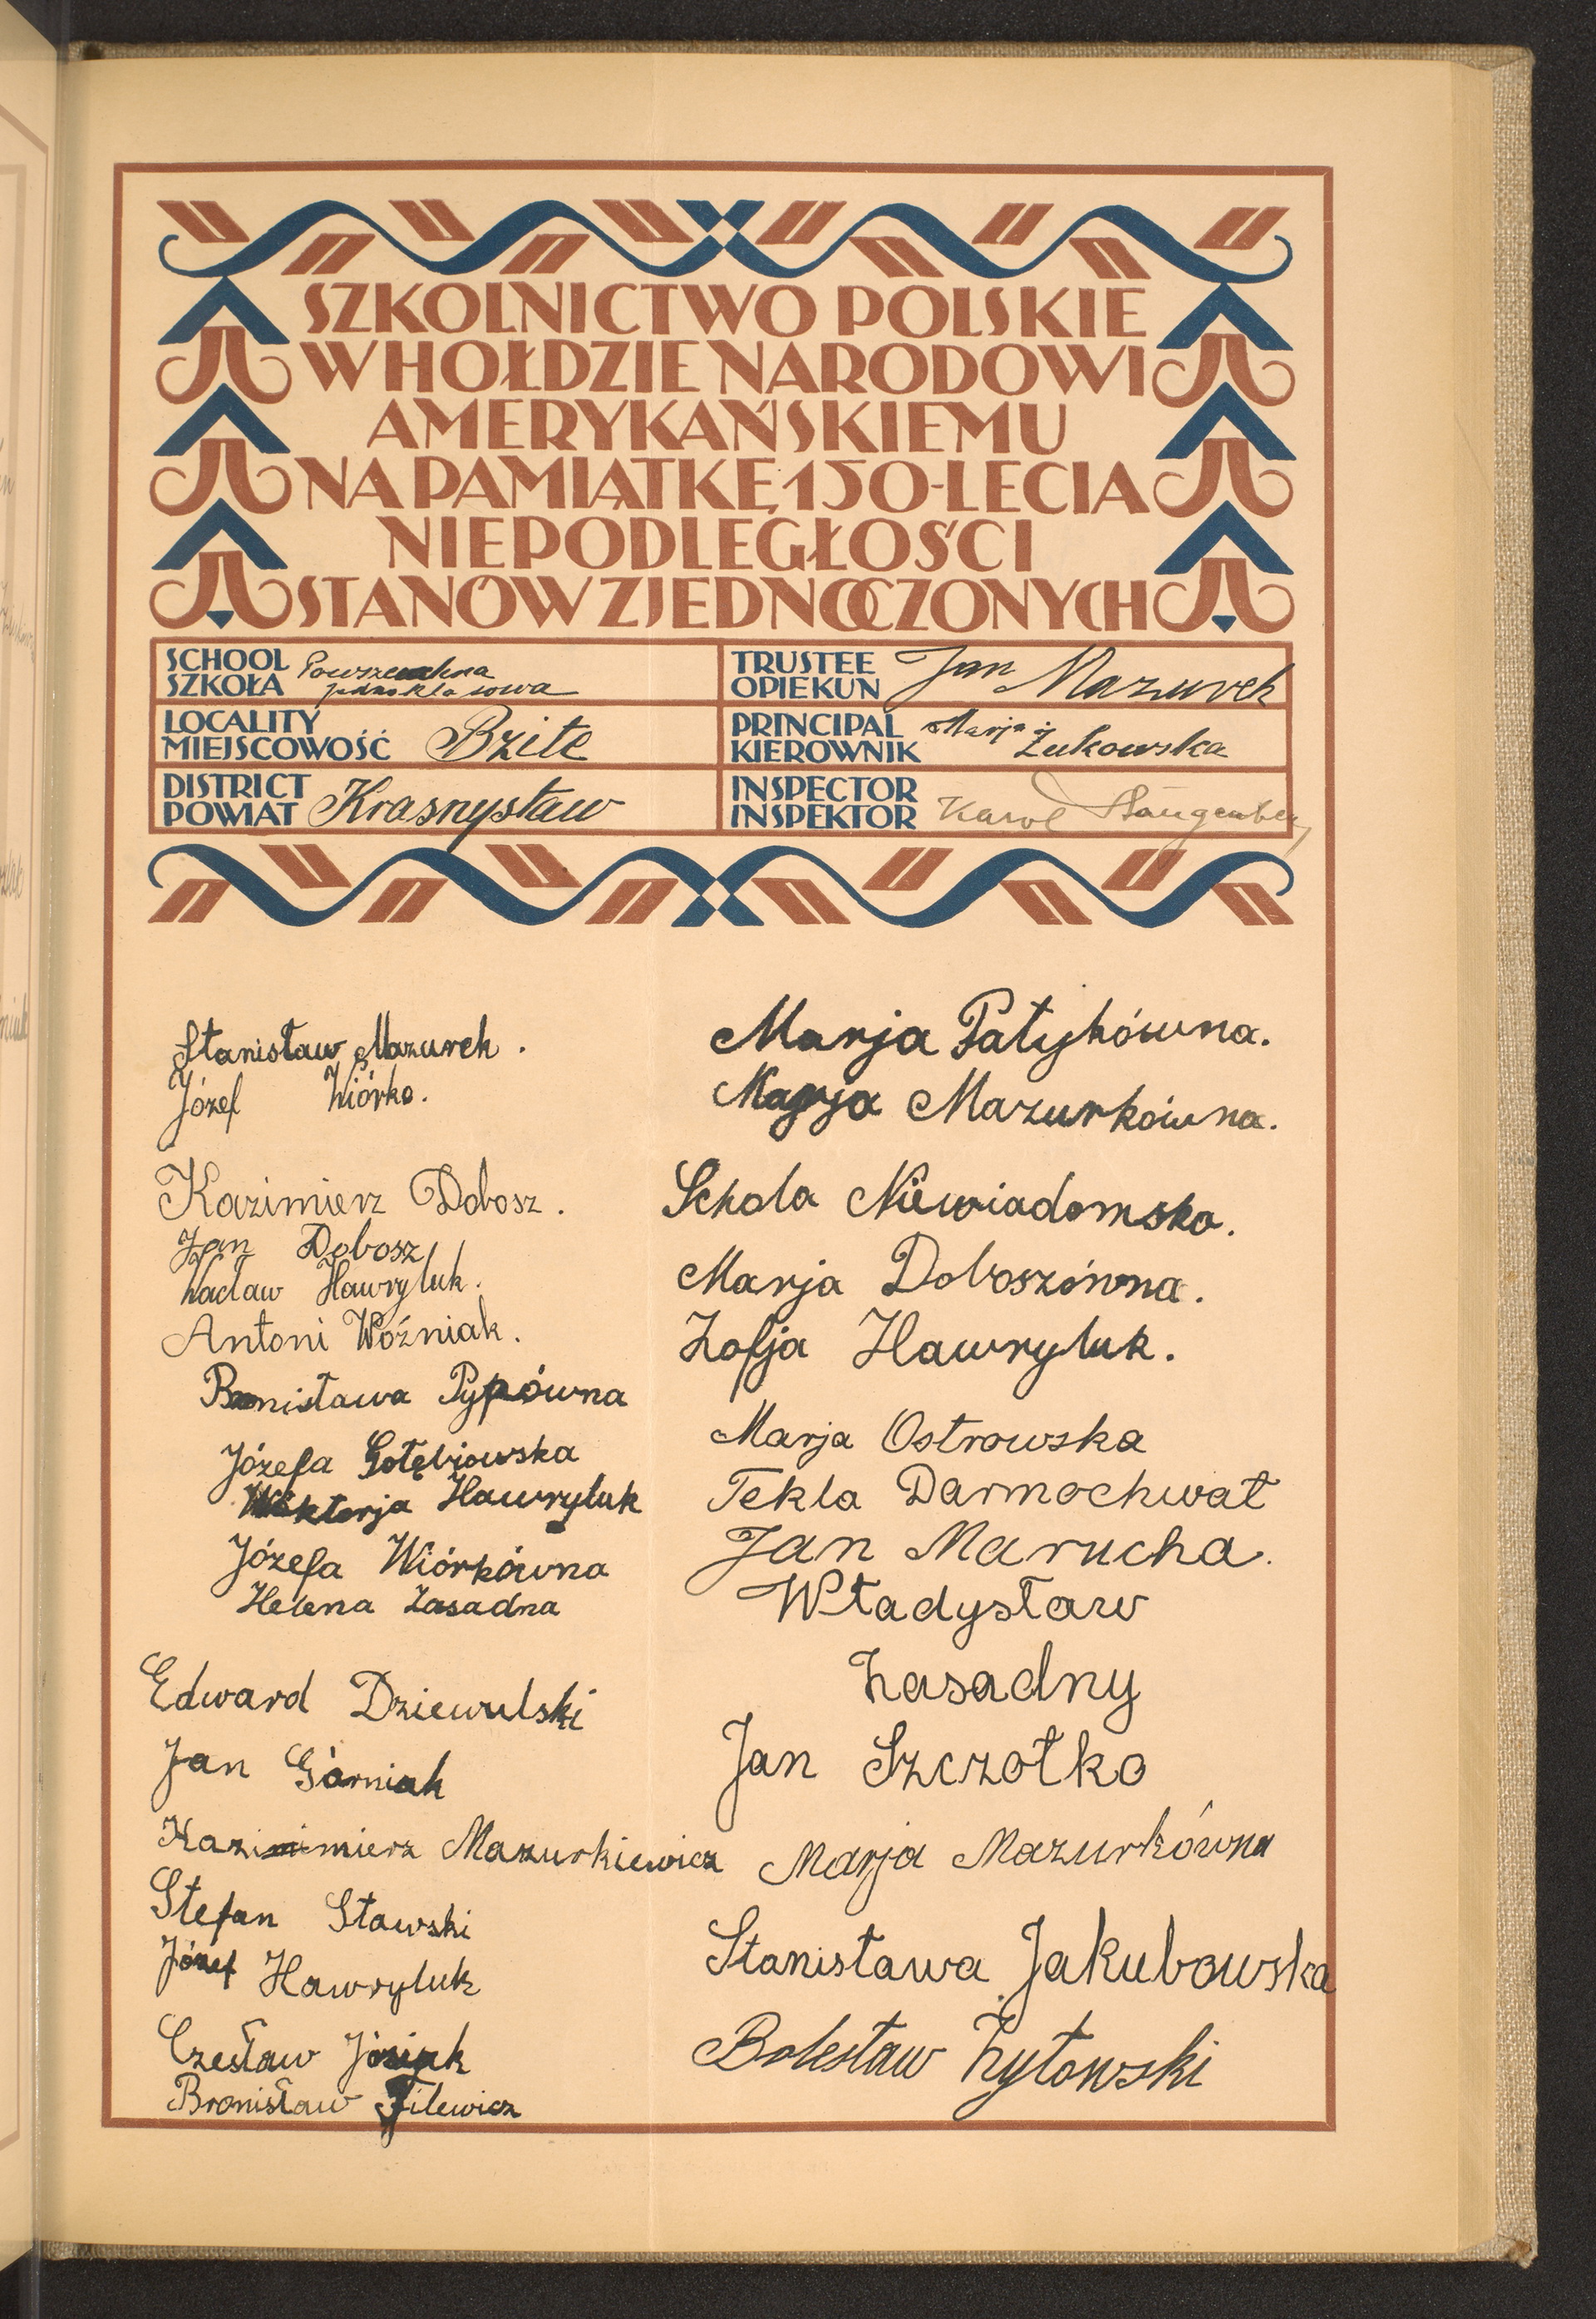 SZKOLNICTWO POLSKIE
W HOŁDZIE NARODOWI
AMERYKAŃSKIEMU
NA PAMIĄTKĘ 150-LECIA
NIEPODLEGŁOŚCI
STANÓW ZJEDNOCZONYCH
SCHOOL
SZKOŁA
Powszechna
jednoklasowa
TRUSTEE
OPIEKUN
Jan Mazurek
LOCALITY
MIEJSCOWOŚĆ
Bzite
PRINCIPAL
KIEROWNIK
Marja
Żukowska
DISTRICT
POWIAT
Krasnystaw
INSPECTOR
INSPEKTOR
Karol
Stanisław Mazurek.
Józef Wiórko.
Kazimierz Dobosz.
Jan Dobosz
Wacław Hawryluk.
Antoni Woźniak.
Bronisława Pypówna
Józefa Gołębiowska
Wiktorja Hawryluk
Józefa Wiórkówna
Helena Zasadna
Edward Dziewulski
Jan Górniak
Kazimierz Mazurkiewicz
Stefan Stawski
Józef Hawryluk
Czesław Józiak
Bronisław Filewicz
Marja Patykówna.
Marja Mazurkówna.
Schola Niewiadomska.
Marja Doboszówna.
Zofja Hawryluk.
Marja Ostrowska
Tekla Darmochwał
Jan Marucha.
Władysław
Zasadny
Jan Szczotka
Marja Mazurkówna
Stanisława Jakubowska
Bolesław Żytowski